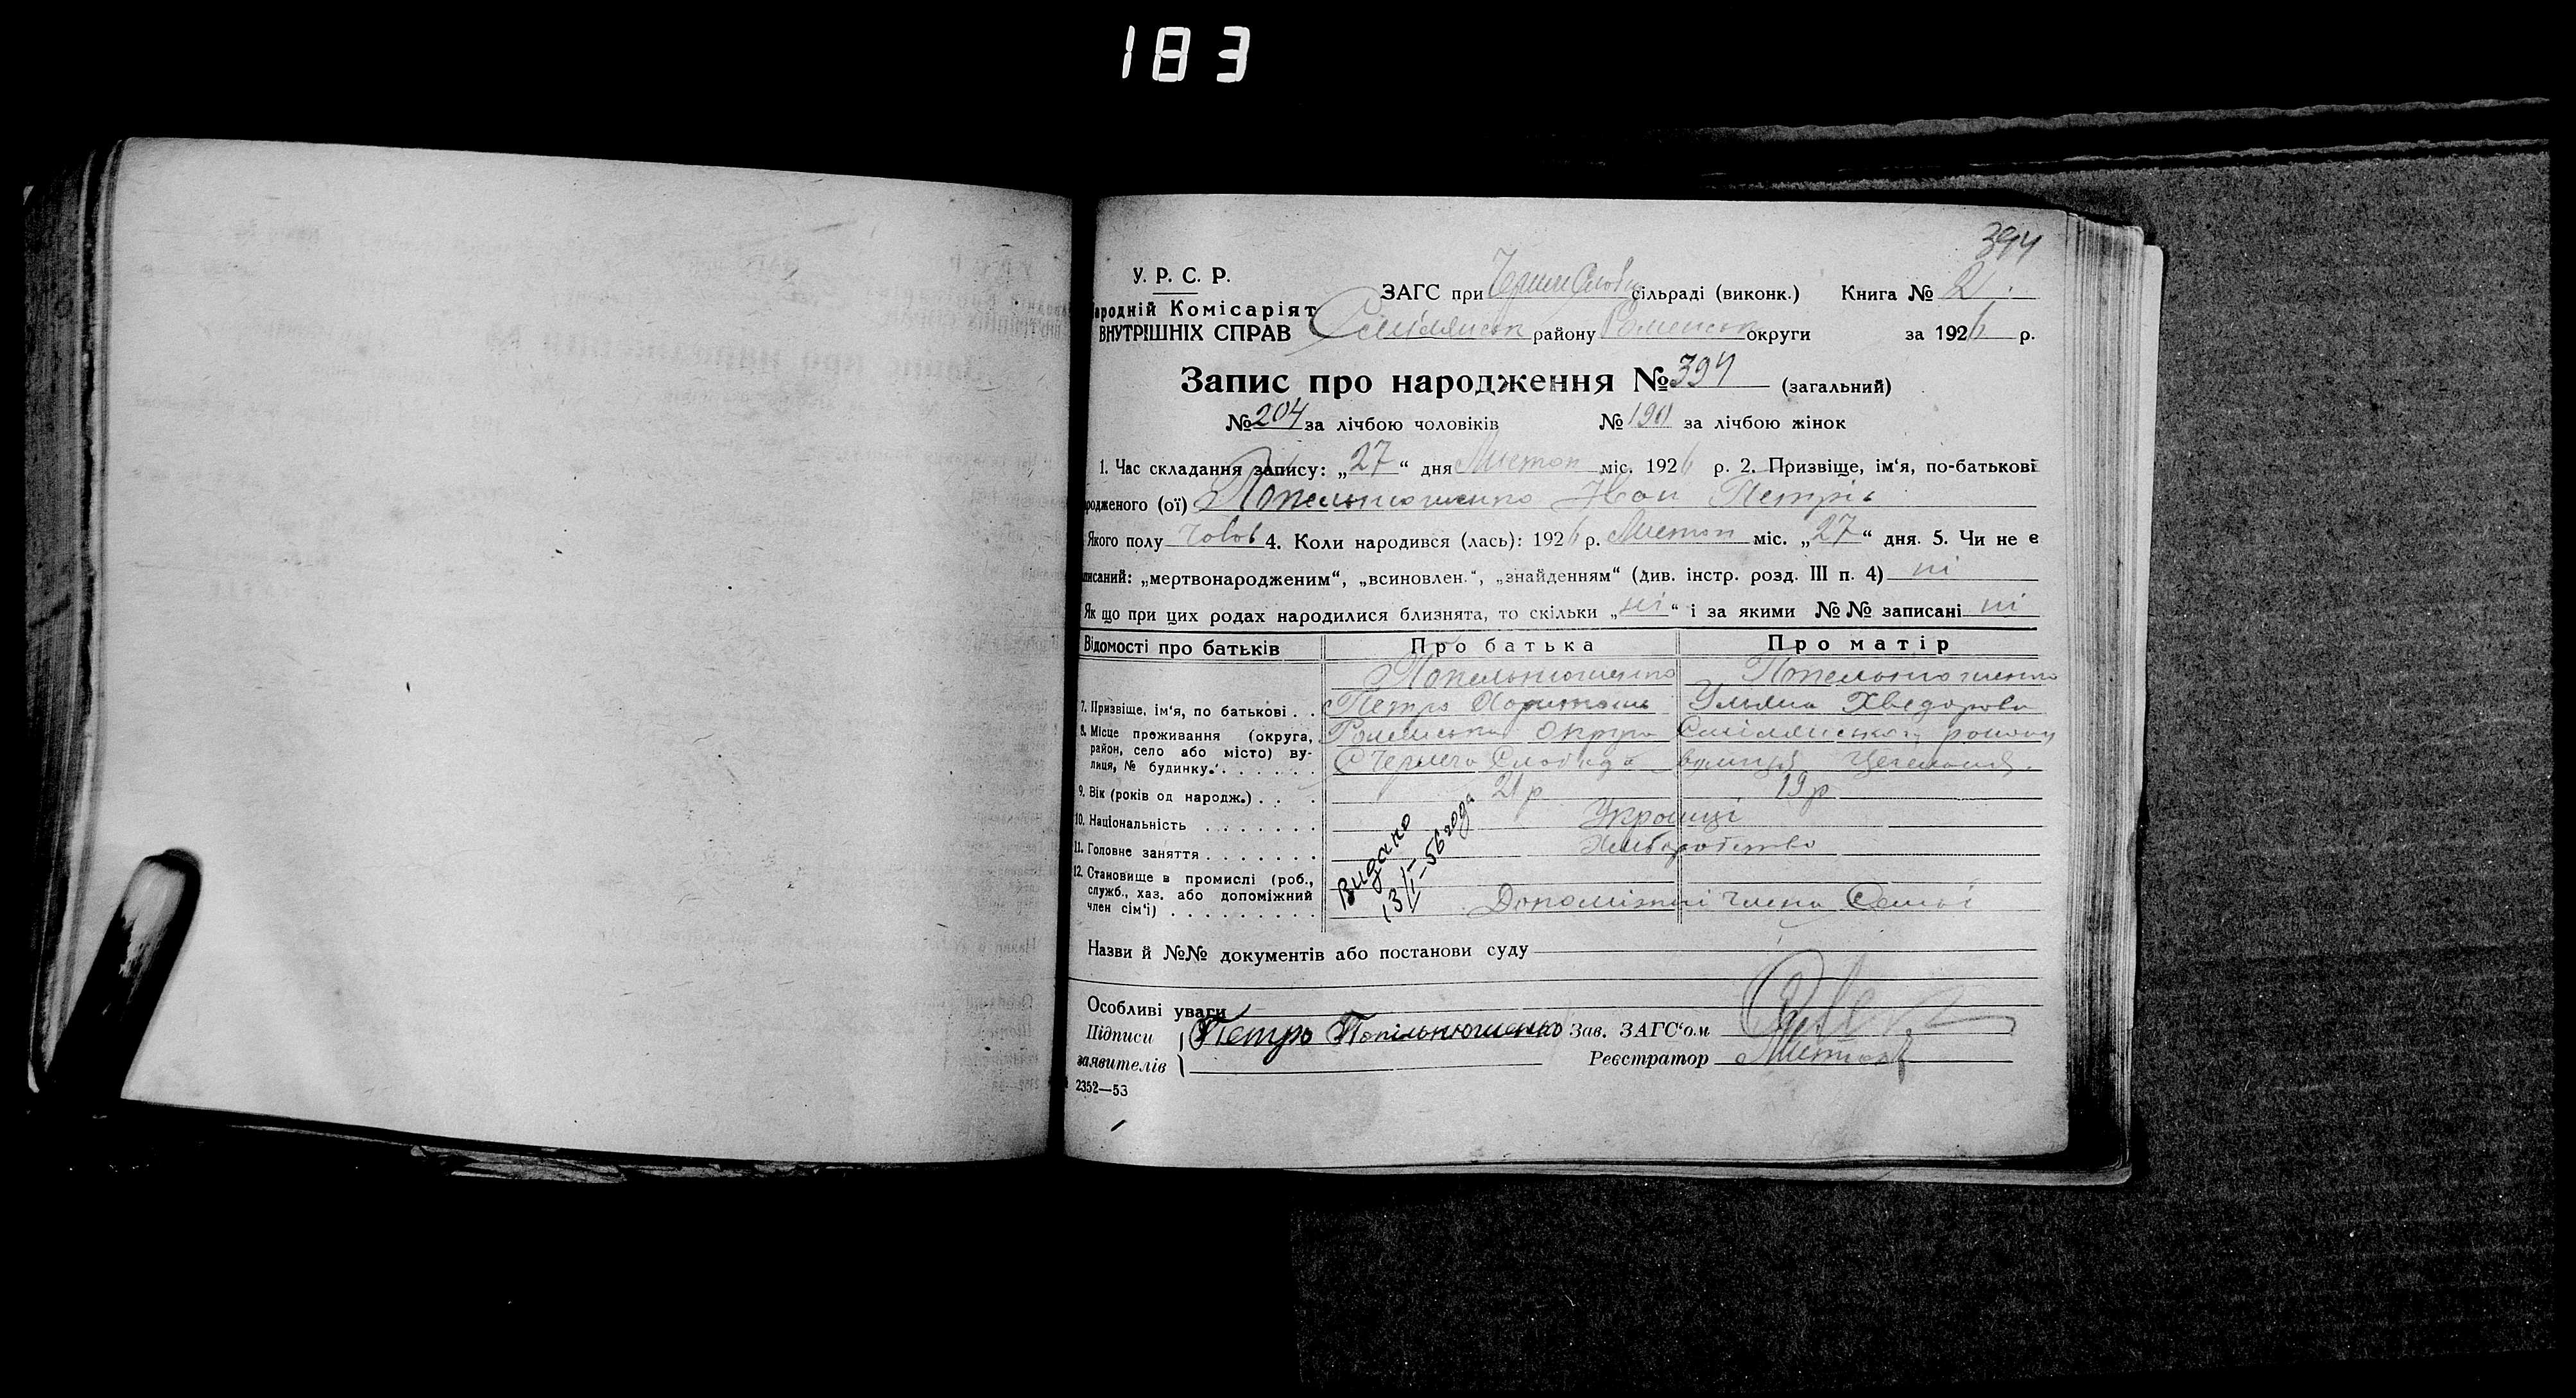 183
394
У. Р. С. Р.
ЗАГС при Черечо Слобід сільраді (виконк.) Книга № 2
ародній Комісаріят
ВНУТРІШНІХ СПРАВ
Смілянськ району Роменськ округи за 1926 р.
Запис про народження № 394 (загальний)
№ 204 за лічбою чоловіків № 190 за лічбою жінок
1. Час складання запису: „27“ дня Листоп міс. 1926 р. 2. Призвіще, ім‘я, по-батькові
родженого (ої) Попельнюшенко Іван Петрів
Якого полу Чолов 4. Коли народився (лась): 1926 р. Листоп міс. „27“ дня. 5. Чи не є
писаний: „мертвонародженим“, „всиновлен.“, „знайденням“ (див. інстр. розд. III п. 4) ні
Як що при цих родах народилися близнята, то скільки „ні“ і за якими №№ записані ні
Відомості про батьків Про батька Про матір
Попельнюшенко Попельнюшенко
7. Призвіще, ім‘я, по батькові . . Петро Харитонів Уляна Хведорова
8. Місце проживання (округа, район, село або місто) вулиця, № будинку. . . . . . . Роменська Округа Смілянського району
С Черечо Слобода вулиця
9. Вік (років од народж.) . . . 21 р 19 р
10. Національність . . . . . . . Українці
11. Головне заняття . . . . . . . Хліборобство
12. Становище в промислі (роб., служб., хаз. або допоміжний член сім‘ї) . . . . . . . . . Допоміжні члени Семьї
Видано
13/I-56 года
Назви й №№ документів або постанови суду
Особливі уваги
Підписи Петро Попільнюшенко Зав. ЗАГС‘ом
заявителів Реєстратор
2352—53